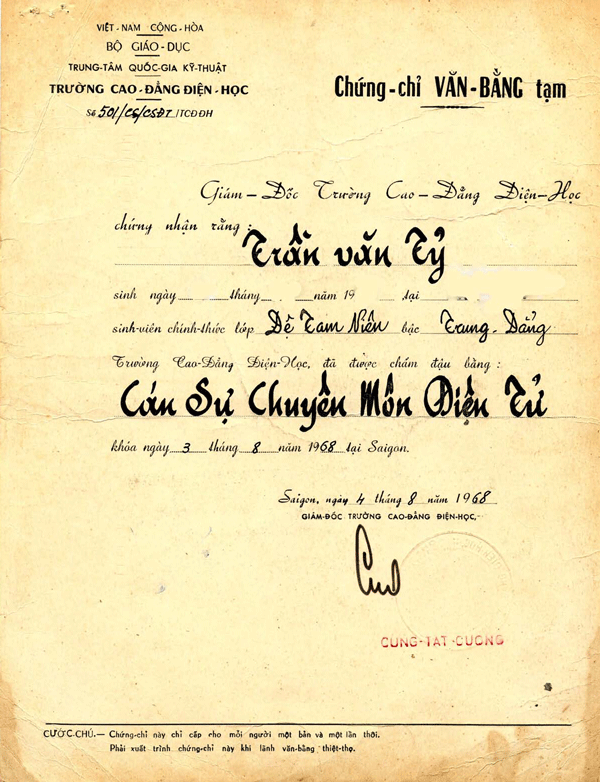 VIỆT-NAM CỘNG-HÒA
BỘ GIÁO-DỤC
TRUNG-TÂM QUỐC-GIA KỸ-THUẬT
TRƯỜNG CAO-ĐẲNG ĐIỆN-HỌC
Số 501/CC/CSĐT/TCĐĐH
Chứng-chỉ VĂN-BẰNG tạm
Giám-Đốc Trường Cao-Đẳng Điện-Học
chứng nhận rằng :
Trần văn Tỷ
sinh ngày tháng năm 19 tại
sinh-viên chính-thức lớp Đệ Tam Niên bậc Trung-Đẳng
Trường Cao-Đẳng Điện-Học, đã được chấm đậu bằng :
Cán Sự Chuyên Môn Điện Tử
khóa ngày 3 tháng 8 năm 1968 tại Saigon.
Saigon, ngày 4 tháng 8 năm 1968
GIÁM-ĐỐC TRƯỜNG CAO-ĐẲNG ĐIỆN-HỌC,
CUNG-TAT-CUONG
CƯỚC-CHÚ.— Chứng-chỉ này chỉ cấp cho mỗi người một bản và một lần thôi.
Phải xuất trình chứng-chỉ này khi lãnh văn-bằng thiệt-thọ.